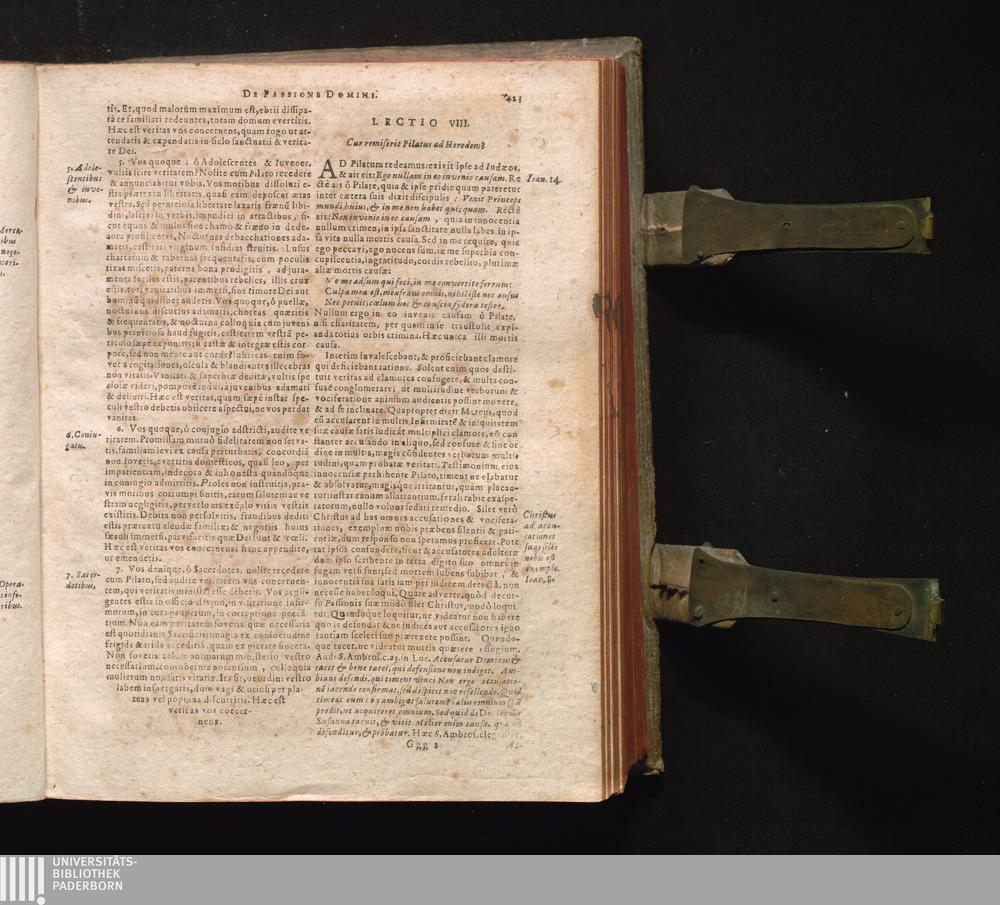 DE PASSIONE DOMINI.
423
tis. Et, quod malorũm maximum est, ebrii dissipa-
tâ re familiari redeuntes, totam domum evertitis.
Hæc est veritas vos concernens, quam rogo ut at-
tendatis & expendatis in siclo sanctuatii & verita-
te Dei.
5. Adole-
scentibus
& iuve-
nibus.
5. Vos quoque, ô Adolescentes & Iuvenes,
vultis scire veritatem? Nolite cum Pilato recedere
& annunciabitur vobis. Vos moribus dissoluti e-
stis prætextu libertatis, quasi eam deposcat ætas
vestra. Sed perniciosa libertate laxatis frænũ libi-
dini, lascivi in verbis, impudici in attactibus, si-
cut equus & mulus sine chamo & fræno in dede-
cora prosilientes. Nocturnas debacchationes ada-
matis, castitati virginum insidias struitis. Lusus
chartarum & tabernas frequentatis, cum poculis
rixas miscetis, paterna bona prodigitis, ad jura-
menta faciles estis, parentibus rebelles, illis crux
estis, toti vanitatibus immersi, sine timore Dei aut
hominũ quidlibet audetis. Vos quoque, ô puellæ,
nocturnos discursus adamatis, choreas quæritis
& frequentatis, & nocturna colloquia cum juveni
bus perniciosa haud fugitis, castitatem vestrã pe-
riculo sæpe exponitis; si castæ & integræ estis cor-
pore, sed non mente aut corde; lubricas enim fo-
vetis cogitationes, oscula & blandientes illecebras
non vitatis. Vanitati & superbiæ deditæ, vultis spe
ciosæ videri, pompose indui, à juvenibus adamari
& deliniri. Hæc est veritas, quam sæpe instar spe-
culi vestro debetis obiicere aspectui, ne vos perdat
vanitas.
6. Coniu-
gatis.
6. Vos quoque, ô conjugio adstricti, audite ve
ritatem. Promissam mutuò fidelitatem non serva-
tis, familiam levi ex causa perturbatis, concordiã
non fovetis, evertitis domesticos, quasi leo, per
impatientiam, indecora & inhonesta quandoque
in coniugio admittitis. Proles non instruitis, pra-
vis moribus corrumpi sinitis, earum salutem ac ve
stram negligitis, perverso eis exẽplo vitiis vestris
existitis. Debita non persolvitis, fraudibus dediti
estis prætextu alendæ familiæ; & negotiis huius
sæculi immersi, parvifacitis quæ Dei sunt & cœli.
Hæc est veritas vos concernens; hanc appendite,
ut emendetis.
7. Sacer-
dotibus.
7. Vos denique, ô Sacerdotes, nolite recedere
cum Pilato, sed audite veritatem vos concernen-
tem, qui veritatis ministri esse debetis. Vos negli-
gentes estis in officio divino, in visitatione infir-
morum, in cura pauperum, in correptione peccã
tium. Non eam puritatem fovetis quæ necessaria
est quotidianis Sacrificiis; magis ex consuetudine
frigida & arida acceditis, quam ex pietate sincera.
Non fovetis zelum animarum ministerio vestro
necessarium, contubernia potantium, colloquia
mulierum non satis vitatis. Ita fit, ut ordini vestro
labem inspergatis, dum vagi & otiosi per pla-
teas vel popinas discurritis. Hæc est
veritas vos concer-
nens.
LECTIO VIII.
Cur remiserit Pilatus ad Herodem?
AD Pilatum redeamus: exivit ipse ad Iudæos,
& ait eis: Ego nullam in eo invenio causam. Re
ctè ais ô Pilate, quia & ipse pridie quam pateretur
inter cætera suis dixit discipulis: Venit Princeps
mundi huius, & in me non habet quicquam. Rectè
ais: Non invenio in eo causam, quia in innocentia
nullum crimen, in ipsa sanctitate nulla labes, in ip-
sa vita nulla mortis causa. Sed in me require, quia
ego peccavi, ego nocens sum, in me superbia con-
cupiscentia, ingratitudo, cordis rebellio, plurimæ
aliæ mortis causæ:
Ioan. 14.
Me me adsum qui feci, in me convertite ferrum:
Culpa mea est, mea fraus omnis, nihil iste nec ausus
Nec potuit; cælum hoc & conscia sydera testor.
Nullum ergo in eo invenis causam ô Pilate,
nisi charitatem, per quam in se transtulit expi-
anda totius orbis crimina. Hæc unica illi mortis
causa.
Interim invalescebant, & proficiebant clamore
qui deficiebant ratione. Solent enim quos desti-
tuit veritas ad clamores confugere, & multa con-
fusè conglomerare, ut multitudine verborum &
vociferatione animum audientis possint movere,
& ad se inclinare. Quapropter dicit Marcus, quod
cũ accusarent in multis, Infirmitatẽ & iniquitatem
suæ causæ satis iudicãt multiplici clamore, nõ con
stanter accusando in aliquo, sed confusè & sine or
dine in multis, magis cõfidentes verborum multi-
tudini, quam probatæ veritati. Testimonium eius
innocentiæ perhibente Pilato, timent ne elabatur
& absolvatur, magisque irritantur, quàm placan-
tur: instar canum allatrantium, ferali rabie exaspe-
ratorum, nullo volunt sedari remedio. Silet verò
Christus ad has omnes accusationes & vocifera-
tiones, exemplum nobis præbens silentii & pati-
entiæ, dum responso non speramus proficere. Pote
rat ipsos confundere, sicut & accusatores adulteræ
dum ipso scribente in terra digito suo omnes in
fugam versi sunt; sed mortem lubens subibat, &
innocentiâ sua satis iam per iudicem detectâ, non
necesse habet loqui. Quare adverte, quòd decur-
su Passionis suæ modò silet Christus, modò loqui
tur. Quandoque loquitur, ne videatur non habere
quo se defendat & ne iudices aut accusatores igno
rantiam sceleri suo prætexere possint. Quando-
que tacet, ne videatur mortis quærere effugium.
Audi S. Ambros. c. 23. in Luc. Accusatur Dominus &
tacet & bene tacet, qui defensione non indiget. Am-
biant defendi, qui timent vinci. Non ergo accusatio-
nẽ tacendo confirmat, sed despicit non refellendo. Quid
timeat cum ... ambigat salutem? salus omnium ...
prodit, ut acquireret omnium. Sed quid de Deo loquar
Susanna tacuit, & vicit. Melior enim causa, quæ nõ
defenditur, & probatur. Hæc S. Ambros. eleganter.
Christus
ad accu-
sationes
suas silẽs
nobis est
exemplo.
Ioan. 8.
Ggg 2
Al-
UNIVERSITÄTS-
BIBLIOTHEK
PADERBORN